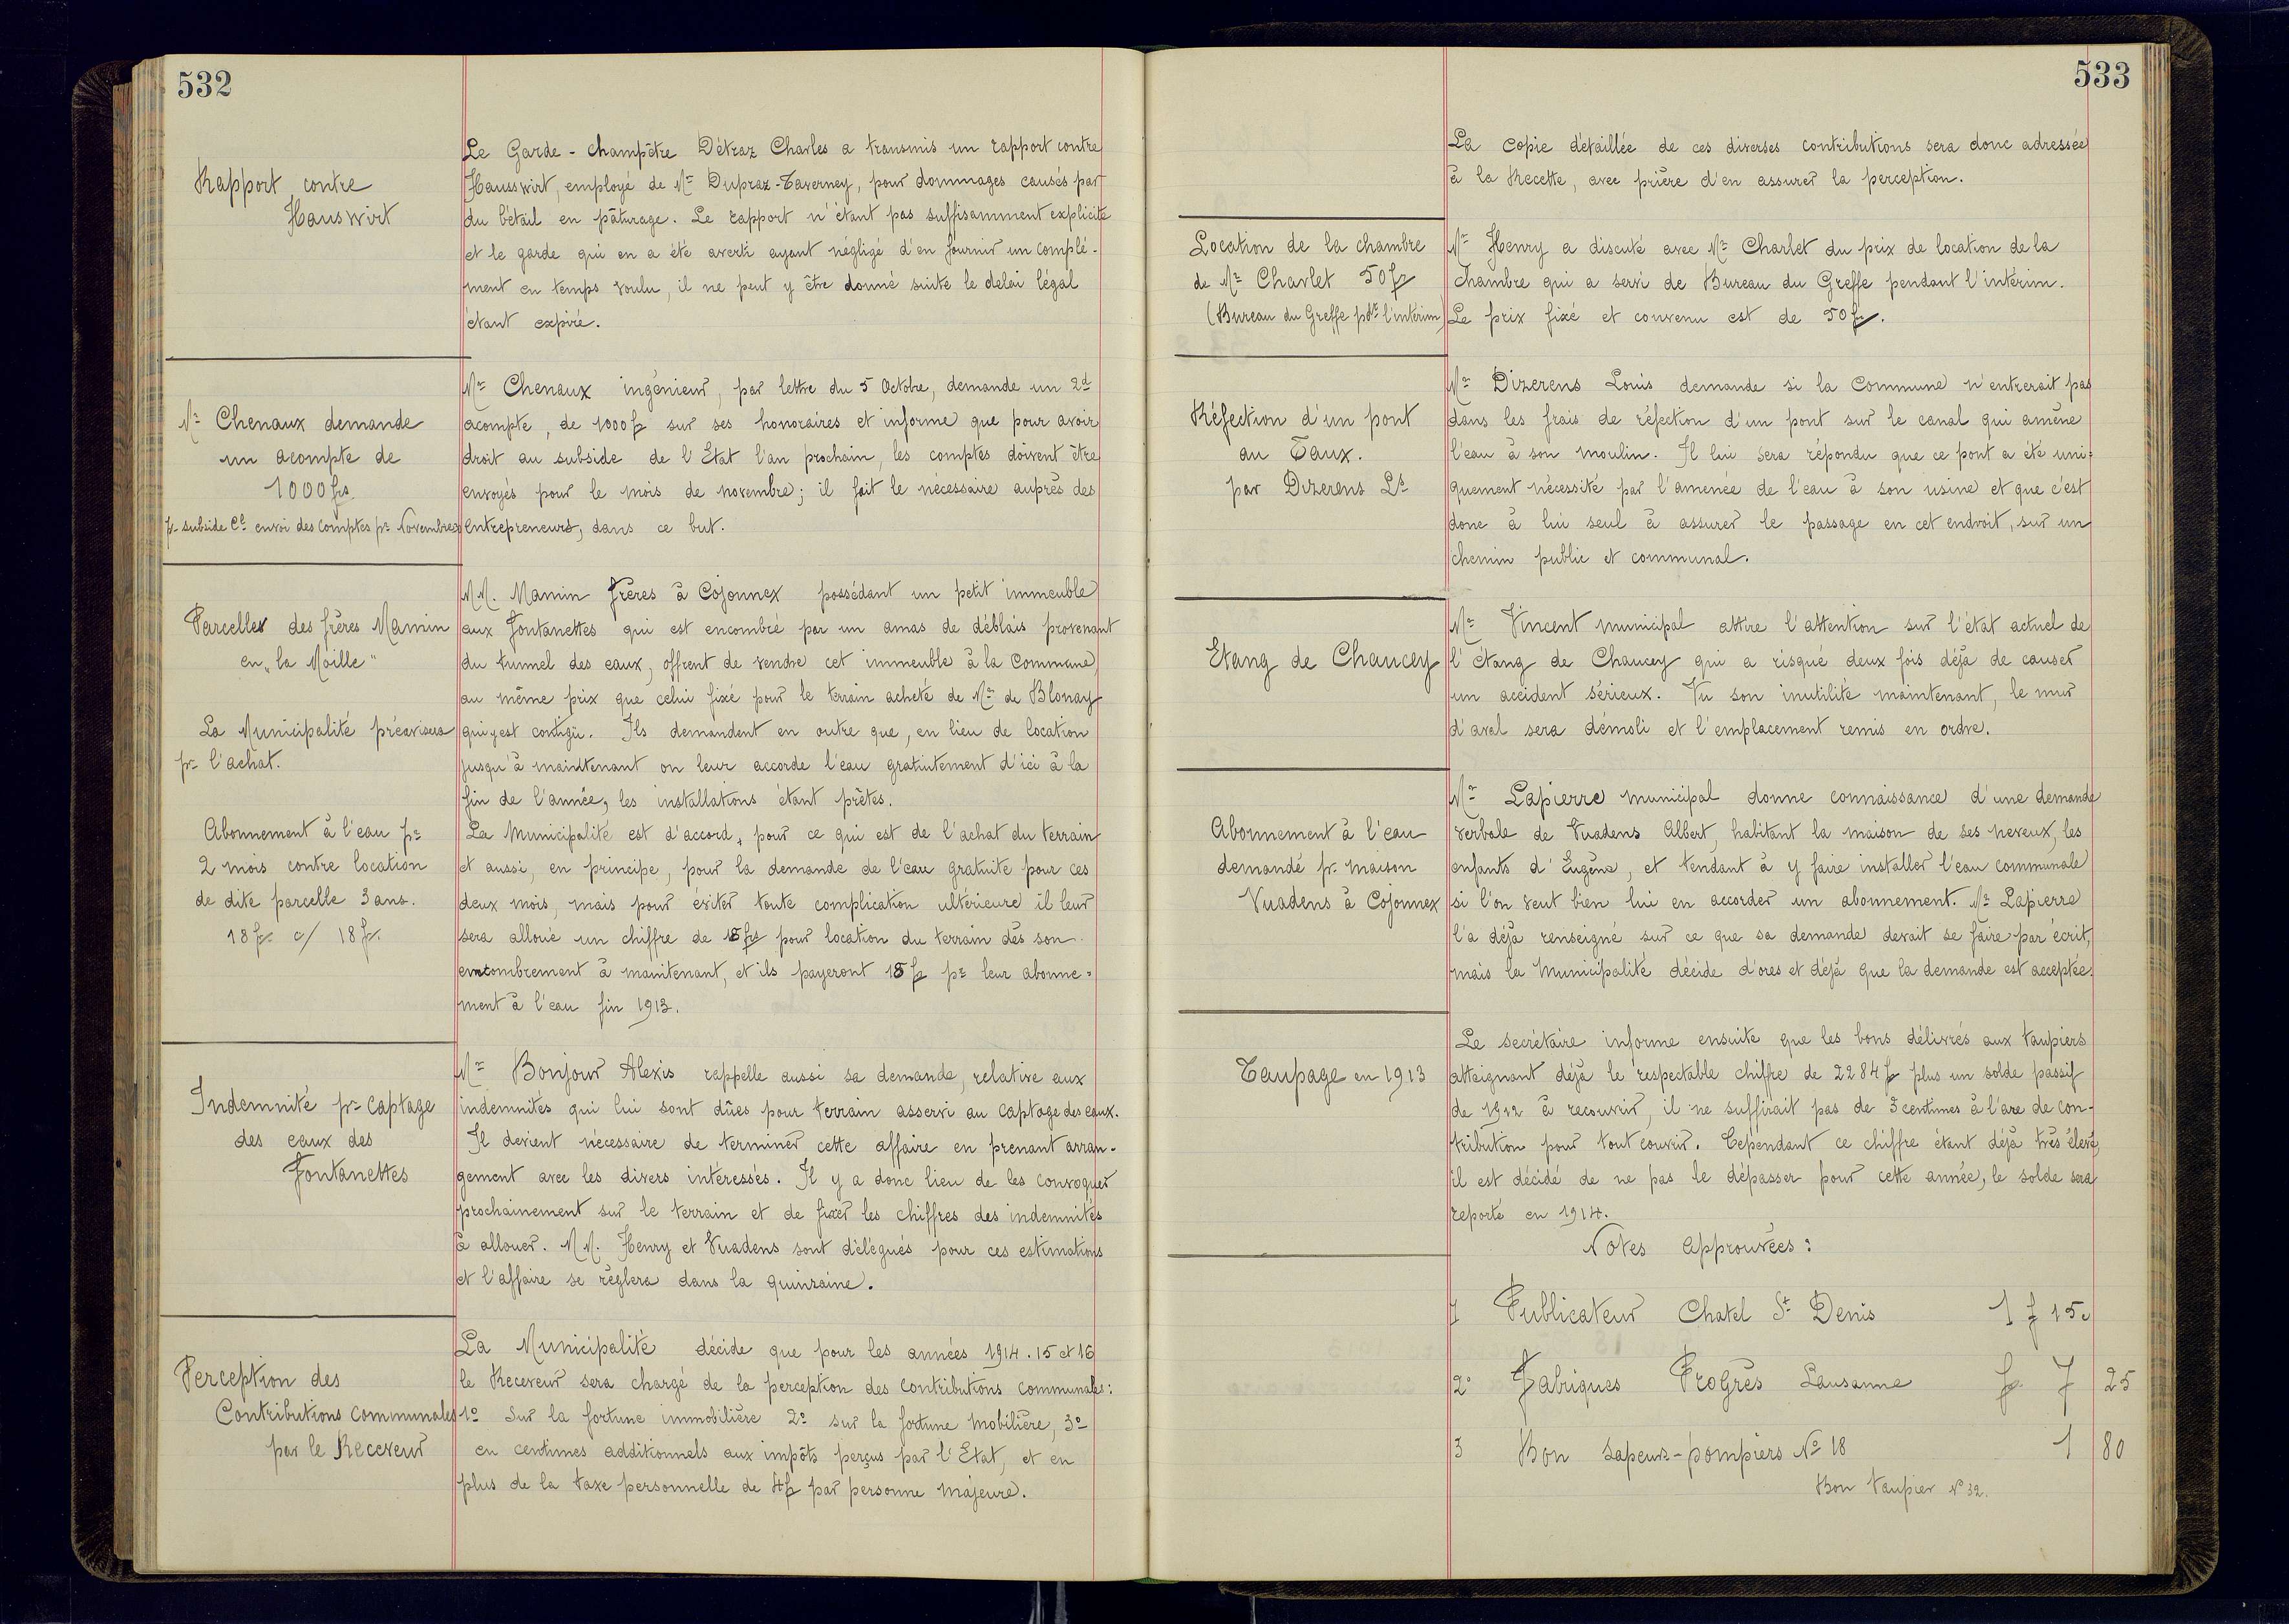 532
Rapport contre
Hauswirt
Le Garde-champêtre Détraz Charles a transmis un rapport contre
Hauswirt, employé de Mr Dupraz-Taverney, pour dommages causés par
du bétail en pâturage. Le rapport n'étant pas suffisamment explicite
et le garde qui en a été averti ayant négligé d'en fournir un complé-
ment en temps voulu, il ne peut y être donné suite le delai légal
étant expiré.
Mr Chenaux demande
un acompte de
1000 frs
pr subside Cl envoi des comptes pr Novembre
Mr Chenaux ingénieur, par lettre du 5 Octobre, demande un 2d
acompte, de 1000 fr sur ses honoraires et informe que pour avoir
droit au subside de l'Etat l'an prochain, les comptes doivent être
envoyés pour le mois de novembre; il fait le nécessaire auprès des
entrepreneurs, dans ce but.
Parcelles des frères Mamin
en "la Moille"
La Municipalité préavisera
pr l'achat.
Abonnement à l'eau pr
2 mois contre location
de dite parcelle 3 ans.
18 fr. c/ 18 fr.
MM. Mamin frères à Cojonnex possédant un petit immeuble
aux Fontanettes qui est encombré par un amas de déblais provenant
du tunnel des eaux, offrent de vendre cet immeuble à la Commune,
au même prix que celui fixé pour le terrain acheté de Mr de Blonay
qui y est contigü. Ils demandent en outre que, en lieu de location
jusqu'à maintenant on leur accorde l'eau gratuitement d'ici à la
fin de l'année, les installations étant prêtes.
La Municipalité est d'accord, pour ce qui est de l'achat du terrain
et aussi, en principe, pour la demande de l'eau gratuite pour ces
deux mois, mais pour éviter toute complication ultérieure il leur
sera alloué un chiffre de 18 frs pour location du terrain dès son
encombrement à maintenant, et ils payeront 18 fr pr leur abonne=
ment à l'eau fin 1913.
Indemnité pr captage
des eaux des
Fontanettes
Mr Bonjour Alexis rappelle aussi sa demande, relative aux
indemnités qui lui sont dûes pour terrain asservi au captage des eaux.
Il devient nécessaire de terminer cette affaire en prenant arran-
gement avec les divers intéressés. Il y a donc lieu de les convoquer
prochainement sur le terrain et de fixer les chiffres des indemnités
à allouer. MM. Henry et Vuadens sont délégués pour ces estimations
et l'affaire se règlera dans la quinzaine.
Perception des
Contributions communales
par le Receveur
La Municipalité décide que pour les années 1914. 15 et 16
le Receveur sera chargé de la perception des contributions communales:
1o Sur la fortune immobilière 2o sur la fortune mobilière, 3o
en centimes additionnels aux impôts perçus par l'Etat, et en
plus de la taxe personnelle de 4 fr par personne majeure.
533
La copie détaillée de ces diverses contributions sera donc adressée
à la Recette, avec prière d'en assurer la perception.
Location de la chambre
de Mr Charlet 50 fr
(Bureau du Greffe pdt l'intérim)
Mr Henry a discuté avec Mr Charlet du prix de location de la
chambre qui a servi de Bureau du Greffe pendant l'intérim.
Le prix fixé et convenu est de 50 fr.
Réfection d'un pont
au Taux.
par Dizerens Ls
Mr Dizerens Louis demande si la Commune n'entrerait pas
dans les frais de réfection d'un pont sur le canal qui amène
l'eau à son moulin. Il lui sera répondu que ce pont a été uni=
quement nécessité par l'amenée de l'eau à son usine et que c'est
donc à lui seul à assurer le passage en cet endroit, sur un
chemin public et communal.
Etang de Chaucey
Mr Vincent municipal attire l'attention sur l'état actuel de
l'étang de Chaucey qui a risqué deux fois déjà de causer
un accident sérieux. Vu son inutilité maintenant, le mur
d'aval sera démoli et l'emplacement remis en ordre.
Abonnement à l'eau
demandé pr maison
Vuadens à Cojonnex
Mr Lapierre municipal donne connaissance d'une demande
verbale de Vuadens Albert, habitant la maison de ses neveux, les
enfants d'Eugène, et tendant à y faire installer l'eau communale
si l'on veut bien lui en accorder un abonnement. Mr Lapierre
l'a déjà renseigné sur ce que sa demande devait se faire par écrit,
mais la Municipalité décide d'ores et déjà que la demande est acceptée.
Taupage en 1913
Le secrétaire informe ensuite que les bons délivrés aux taupiers
atteignant déjà le respectable chiffre de 2284 fr plus un solde passif
de 1912 à recouvrir, il ne suffirait pas de 3 centimes à l'are de con-
tribution pour tout couvrir. Cependant ce chiffre étant déjà très élevé,
il est décidé de ne pas le dépasser pour cette année, le solde sera
reporté en 1914.
Notes approuvées:
1 Publicateur Chatel St Denis 1 f 15c
2o Fabriques Progrès Lausanne fr. 7 25
3 Bon sapeurs-pompiers No 18 1 80
Bon taupier No 32.